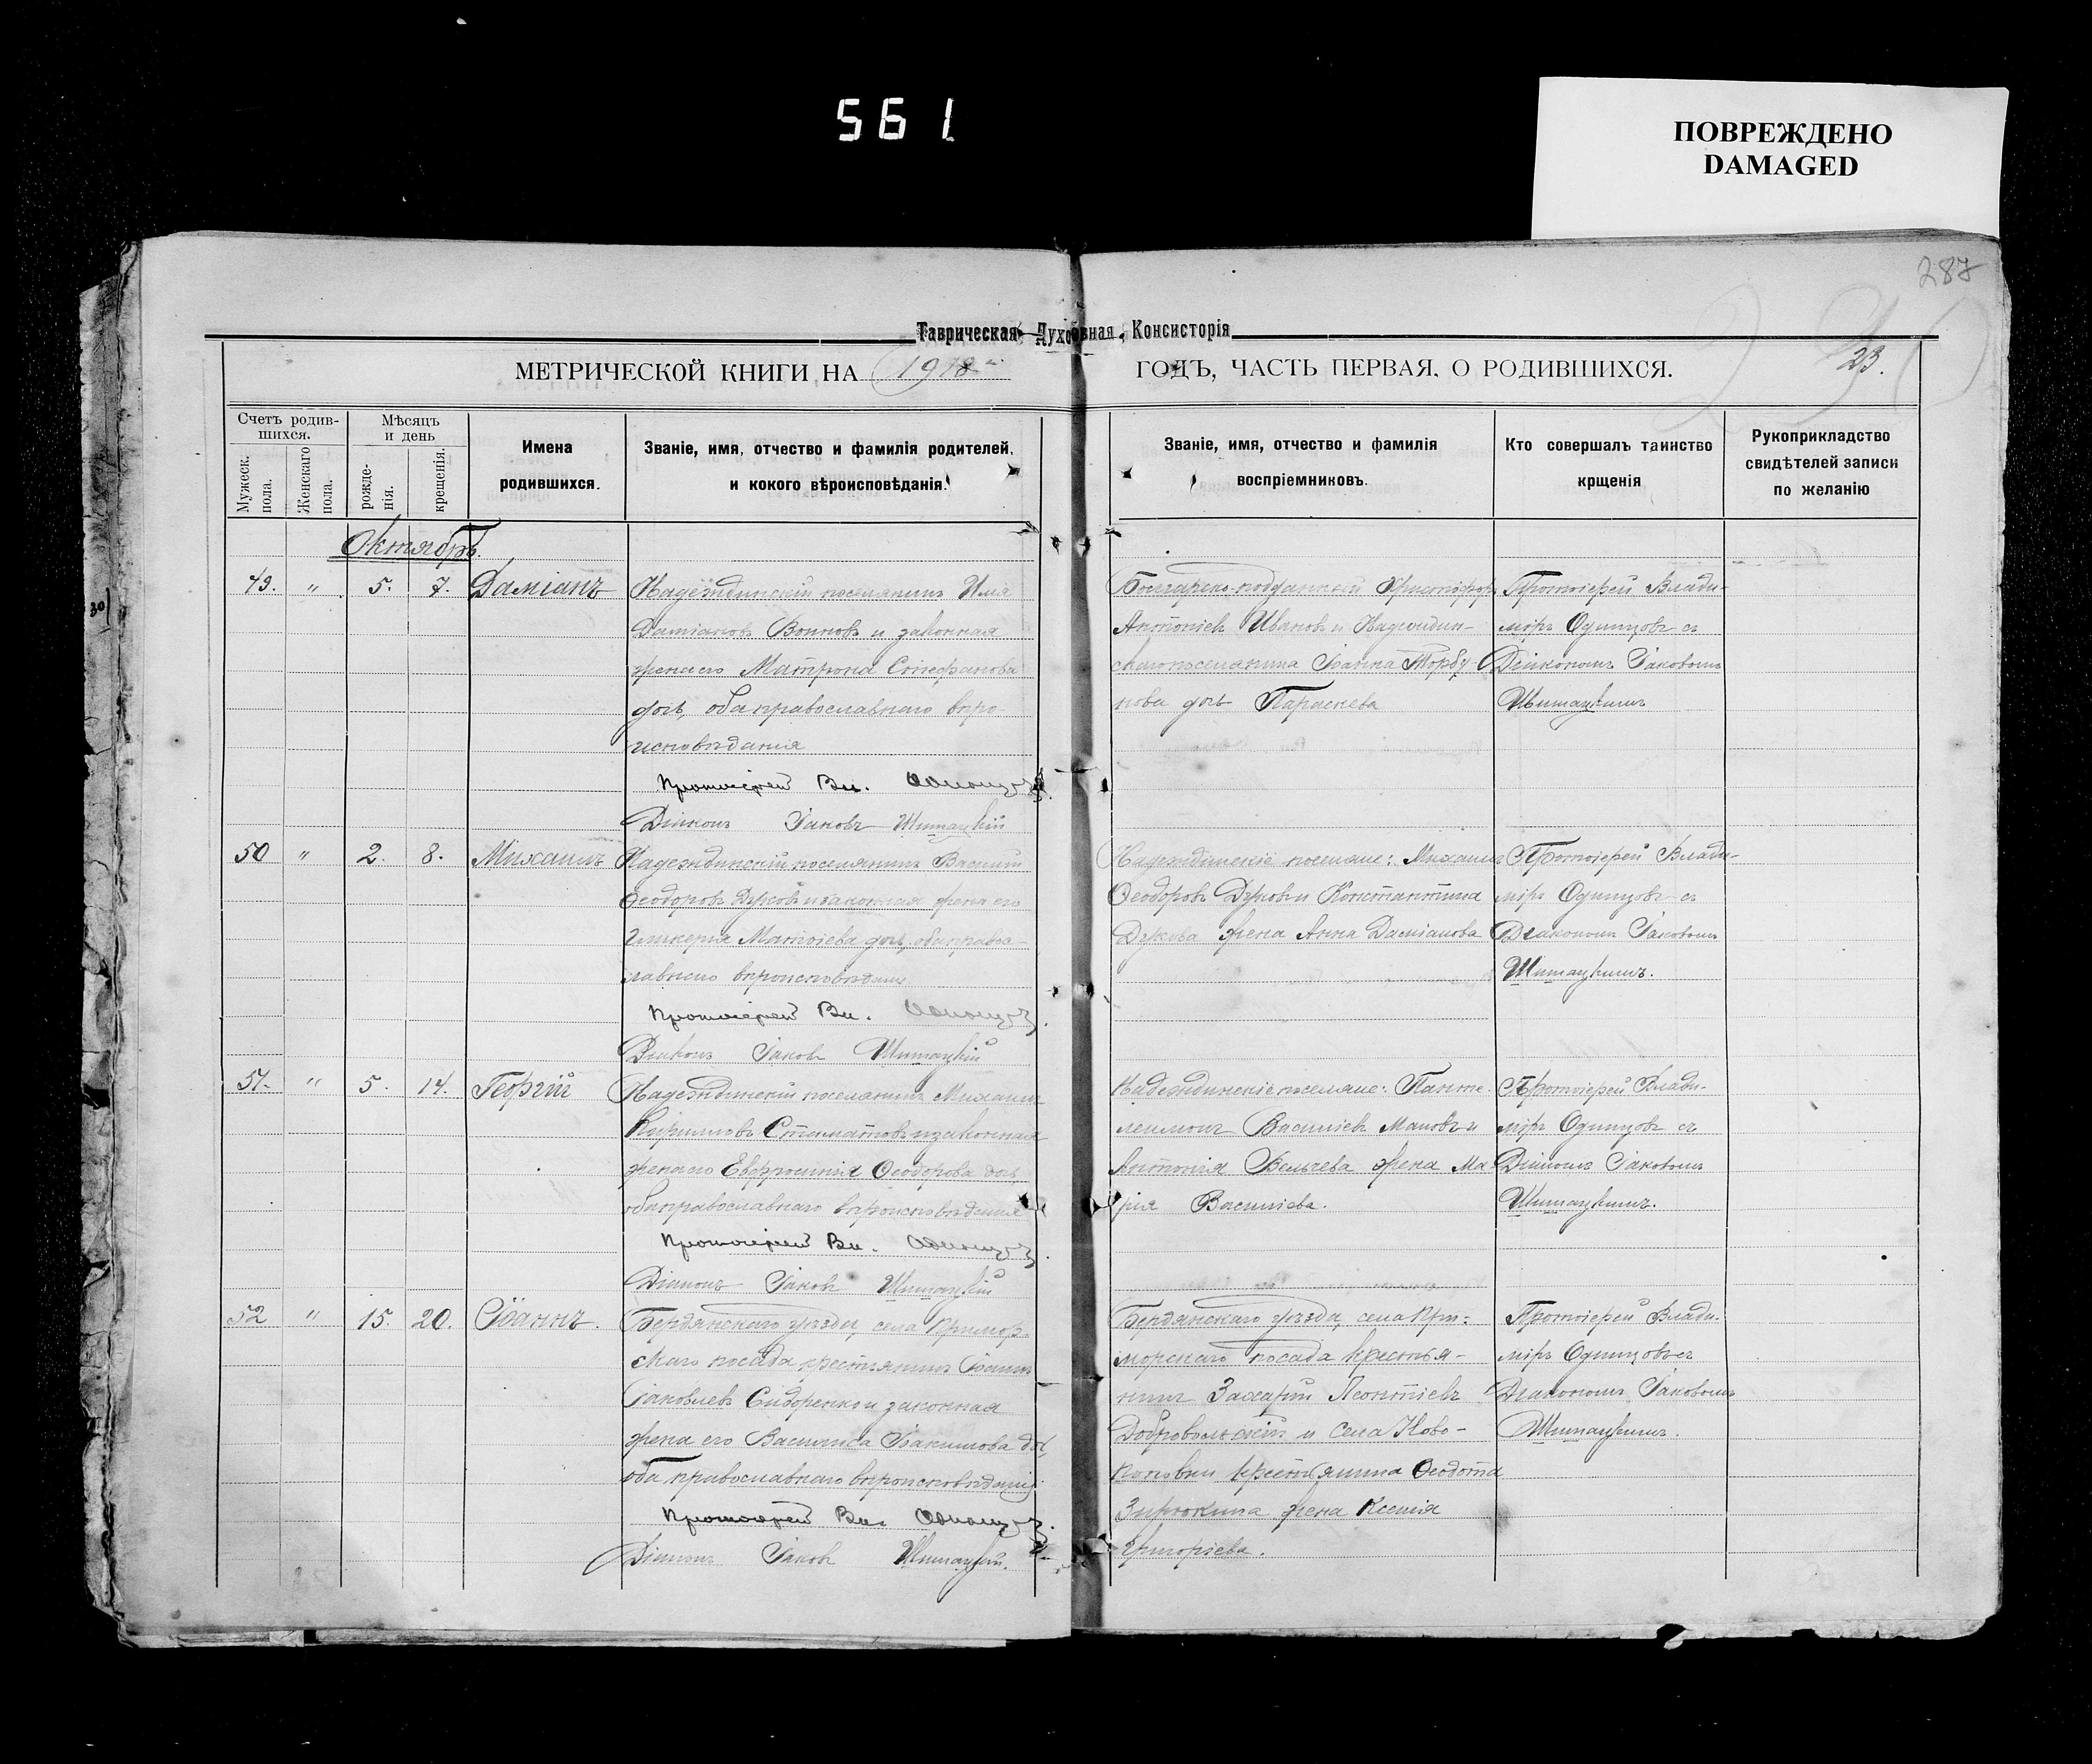 561
ПОВРЕЖДЕНО
DAMAGED
287
Таврическая Духовная Консисторія
МЕТРИЧЕСКОЙ КНИГИ НА 1918 ГОДЪ, ЧАСТЬ ПЕРВАЯ, О РОДИВШИХСЯ.
23.
Счетъ родив-
шихся.
Мужеск.
пола.
Женскаго
пола.
Мѣсяцъ
и день
рожде-
нія.
крещенія.
Имена
родившихся.
Званіе, имя, отчество и фамилія родителей,
и кокого вѣроисповѣданія.
Званіе, имя, отчество и фамилія
воспріемниковъ.
Кто совершалъ таинство
крщенія
Рукоприкладство
свидѣтелей записи
по желанію
Октябрь.
49. " 5. 7. Даміанъ
Надеждинскій поселянинъ Илія
Даміановъ Воиновъ и законная
жена его Матрона Стефанова
дочь, оба православнаго вѣро-
исповѣданія
Протоіерей Вл. Одинцовъ
Діаконъ Іаковъ Шитацкій
Болгарско-подданный Христофоръ
Антоніевъ Ивановъ и Надеждин-
скаго поселянина Іоанна Торбу-
нова дочь Параскева
Протоіерей Влади-
міръ Одинцовъ съ
Діакономъ Іаковомъ
Шитацкимъ
50 " 2. 8. Михаилъ
Надеждинскій поселянинъ Василій
Ѳеодоровъ Држовъ и законная жена его
Гликерія Матѳіева дочь, оба правос-
лавнаго вѣроисповѣданія
Протоіерей Вл. Одинцовъ.
Діаконъ Іаковъ Шитацкій
Надеждинскіе поселяне: Михаилъ
Ѳеодоровъ Држовъ и Константина
Држова жена Анна Даміанова
Протоіерей Влади-
міръ Одинцовъ съ
Діакономъ Іаковомъ
Шитацкимъ.
51. " 5. 14. Георгій
Надеждинскій поселянинъ Михаилъ
Кирилловъ Стаматовъ и законная
жена его Евфросинія Ѳеодорова дочь,
оба православнаго вѣроисповѣданія
Протоіерей Вл. Одинцовъ.
Діаконъ Іаковъ Шитацкій
Надеждинскіе поселяне: Панте-
леимонъ Василіевъ Мановъ и
Антонія Вельчева жена Ма
рія Василіева.
Протоіерей Влади-
міръ Одинцовъ съ
Діакономъ Іаковомъ
Шитацкимъ.
52 " 15. 20. Іоаннъ.
Бердянскаго уѣзда, села Примор-
скаго посада крестьянинъ Іоаннъ
Іаковлевъ Сидоренко и законная
жена его Василиса Іоакимова доч,
оба православнаго вѣроисповѣданія.
Протоіерей Вл. Одинцовъ.
Діаконъ Іаковъ Шитацкій.
Бердянскаго уѣзда, села При-
морскаго посада крестья-
нинъ Захарій Леонтіевъ
Добровольскій и села Ново-
крестьянина Ѳеодота
жена Ксенія
Григоріева.
Протоіерей Влади-
міръ Одинцовъ съ
Діакономъ Іаковомъ
Шитацкимъ.